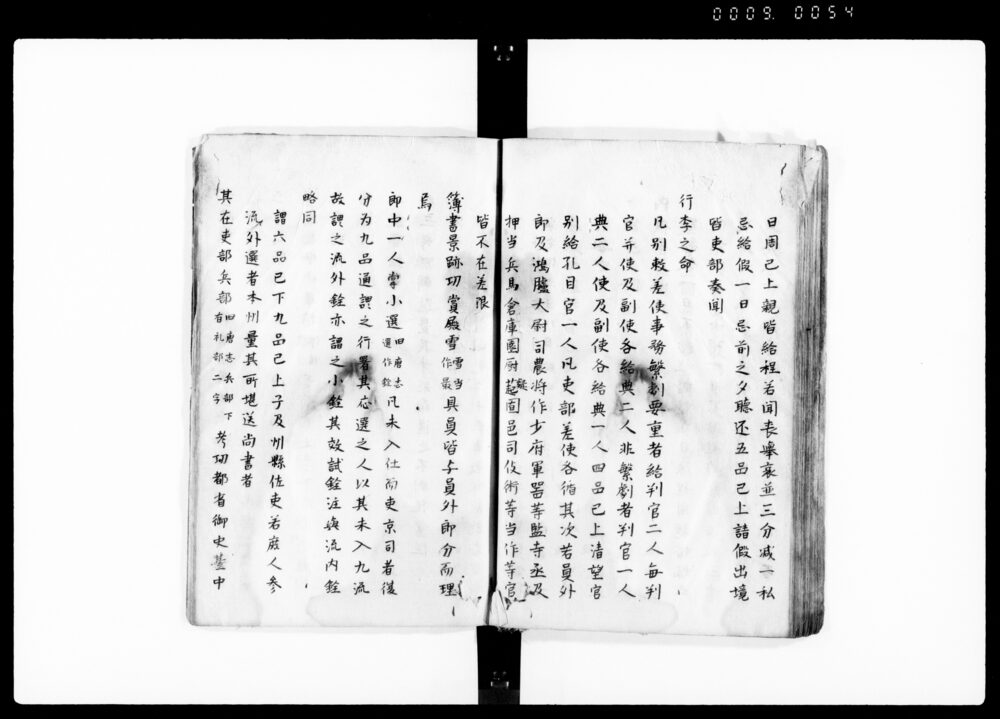 0009. 0054
日周已上親皆給程若聞喪舉哀並三分减一私
忌給假一日忌前之夕聽还五品已上請假出境
皆吏部奏聞
行李之命
凡别敕差使事務繁劇要重者給判官二人每判
官并使及副使各給典二人非繁劇者判官一人
典二人使及副使各給典一人四品已上清望官
别給孔目官一人凡吏部差使各循其次若員外
郎及鴻臚大尉司農将作少府軍器等監寺丞及
押当兵馬倉庫園厨菰疑囿邑司伎術等当作等官
皆不在差限
簿書景跡功賞殿雪雪当作最具員皆与員外郎分而理
焉
郎中一人掌小選旧唐志選作銓凡未入仕而吏京司者復
分为九品通謂之行署其応選之人以其未入九流
故謂之流外銓亦謂之小銓其效試銓注與流内銓
略同
謂六品已下九品已上子及州縣佐吏若庶人参
流外選者本州量其所堪送尚書省
其在吏部兵部旧唐志兵部下有礼部二字考功都省御史䑓中